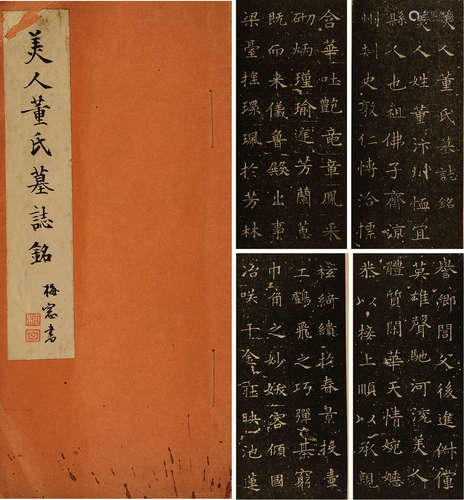 美人董氏墓誌銘
梅窓書
美人董氏墓誌銘
美人姓董汴州恤宜
縣人也祖佛子齊涼
州刺史敦仁博洽標
譽鄉閭父後進俶儻
英雄聲馳河渷美人
體質閑華天情婉嫕
恭以接上順以承親
含華吐艷竜章鳳采
砌炳瑾瑜庭芳蘭蕙
既而来儀魯殿出事
梁臺搖環珮於芳林
袨綺繢於春景投壺
工鶴飛之巧彈棊窮
巾角之妙妖容傾國
冶咲千金莊映池蓮